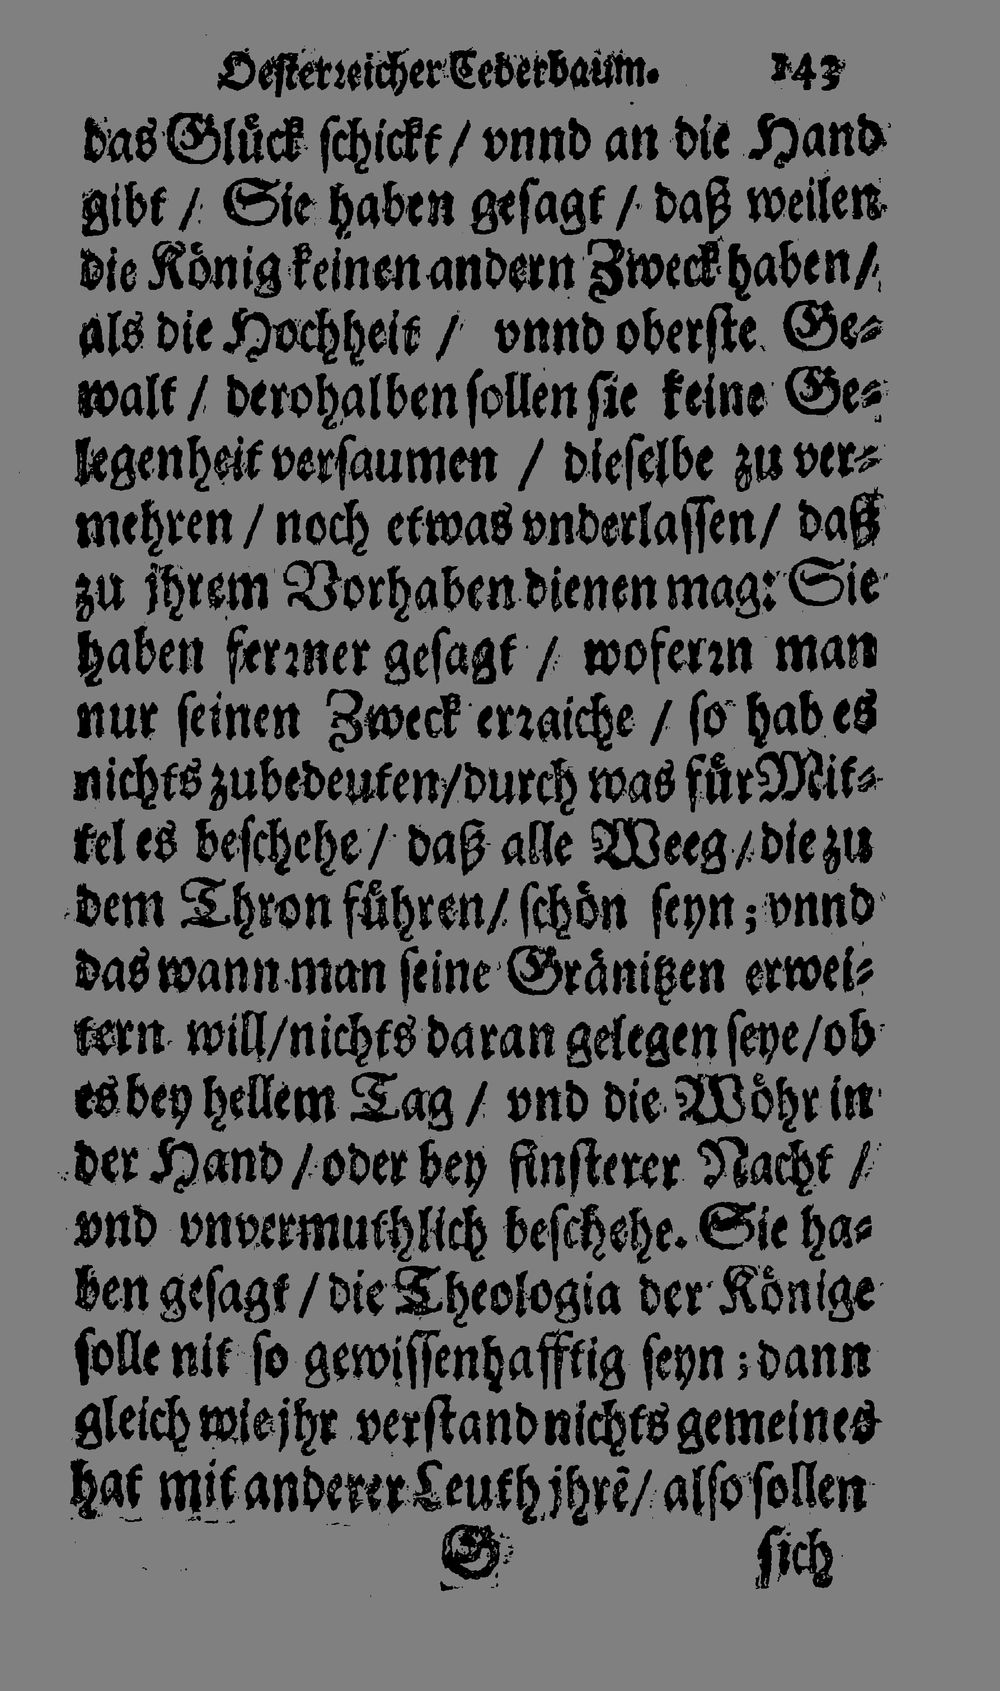 Oesterꝛeicher Cederbaum. 143
das Glůck ſchickt / vnnd an die Hand
gibt / Sie haben geſagt / daß weilen
die Kônig keinen andern Zweck haben /
als die Hochheit / vnnd oberſte Ge⸗
walt / derohalben ſollen ſie keine Ge⸗
legenheit verſaumen / dieſelbe zu ver⸗
mehren / noch etwas vnderlaſſen / daß
zu jhrem Vorhaben dienen mag: Sie
haben ferꝛner geſagt / woferꝛn man
nur ſeinen Zweck erꝛaiche / ſo hab es
nichts zubedeuten / durch was fůr Mit⸗
tel es beſchehe / daß alle Weeg / die zu
dem Thron fůhren / ſchôn ſeyn ; vnnd
das wann man ſeine Grånitzen erwei⸗
tern will / nichts daran gelegen ſeye / ob
es bey hellem Tag / vnd die Wôhr in
der Hand / oder bey finſterer Nacht /
vnd vnvermuthlich beſchehe. Sie ha⸗
ben geſagt / die Theologia der Kônige
ſolle nit ſo gewiſſenhafftig ſeyn ; dann
gleich wie jhr verſtand nichts gemeines
hat mit anderer Leuth jhrē / alſo ſollen
G ſich